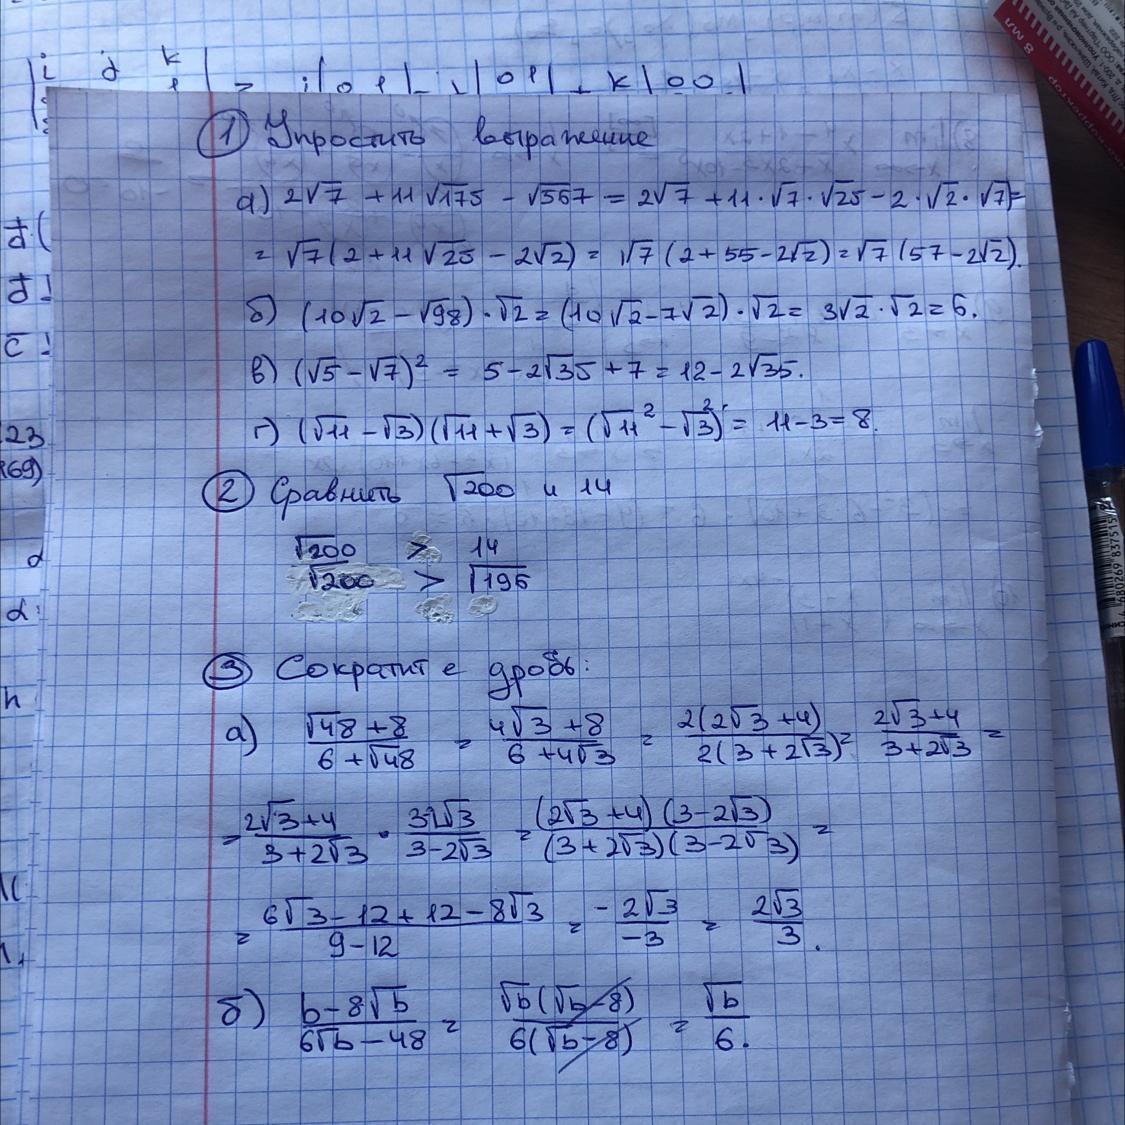 i j k
1 = i|01| - j|01| + k|00|
① Упростить выражение
а) 2√7 + 11√175 - √567 = 2√7 + 11·√7·√25 - 2·√2·√7 =
= √7(2 + 11√25 - 2√2) = √7(2 + 55 - 2√2) = √7(57 - 2√2).
б) (10√2 - √98)·√2 = (10√2 - 7√2)·√2 = 3√2·√2 = 6.
в) (√5 - √7)² = 5 - 2√35 + 7 = 12 - 2√35.
г) (√11 - √3)(√11 + √3) = (√11² - √3²) = 11 - 3 = 8.
② Сравнить √200 и 14
√200 > 14
√200 > √196
③ Сократите дробь:
а) (√48 + 8)/(6 + √48) = (4√3 + 8)/(6 + 4√3) = 2(2√3 + 4)/2(3 + 2√3) = (2√3 + 4)/(3 + 2√3) =
= (2√3 + 4)/(3 + 2√3) · (3-2√3)/(3 - 2√3) = (2√3 + 4)(3 - 2√3)/(3 + 2√3)(3 - 2√3) =
= (6√3 - 12 + 12 - 8√3)/(9 - 12) = (-2√3)/(-3) = 2√3/3.
б) (b - 8√b)/(6√b - 48) = √b(√b - 8)/6(√b - 8) = √b/6.
23
169)
8 МЛ
4 680269 837515